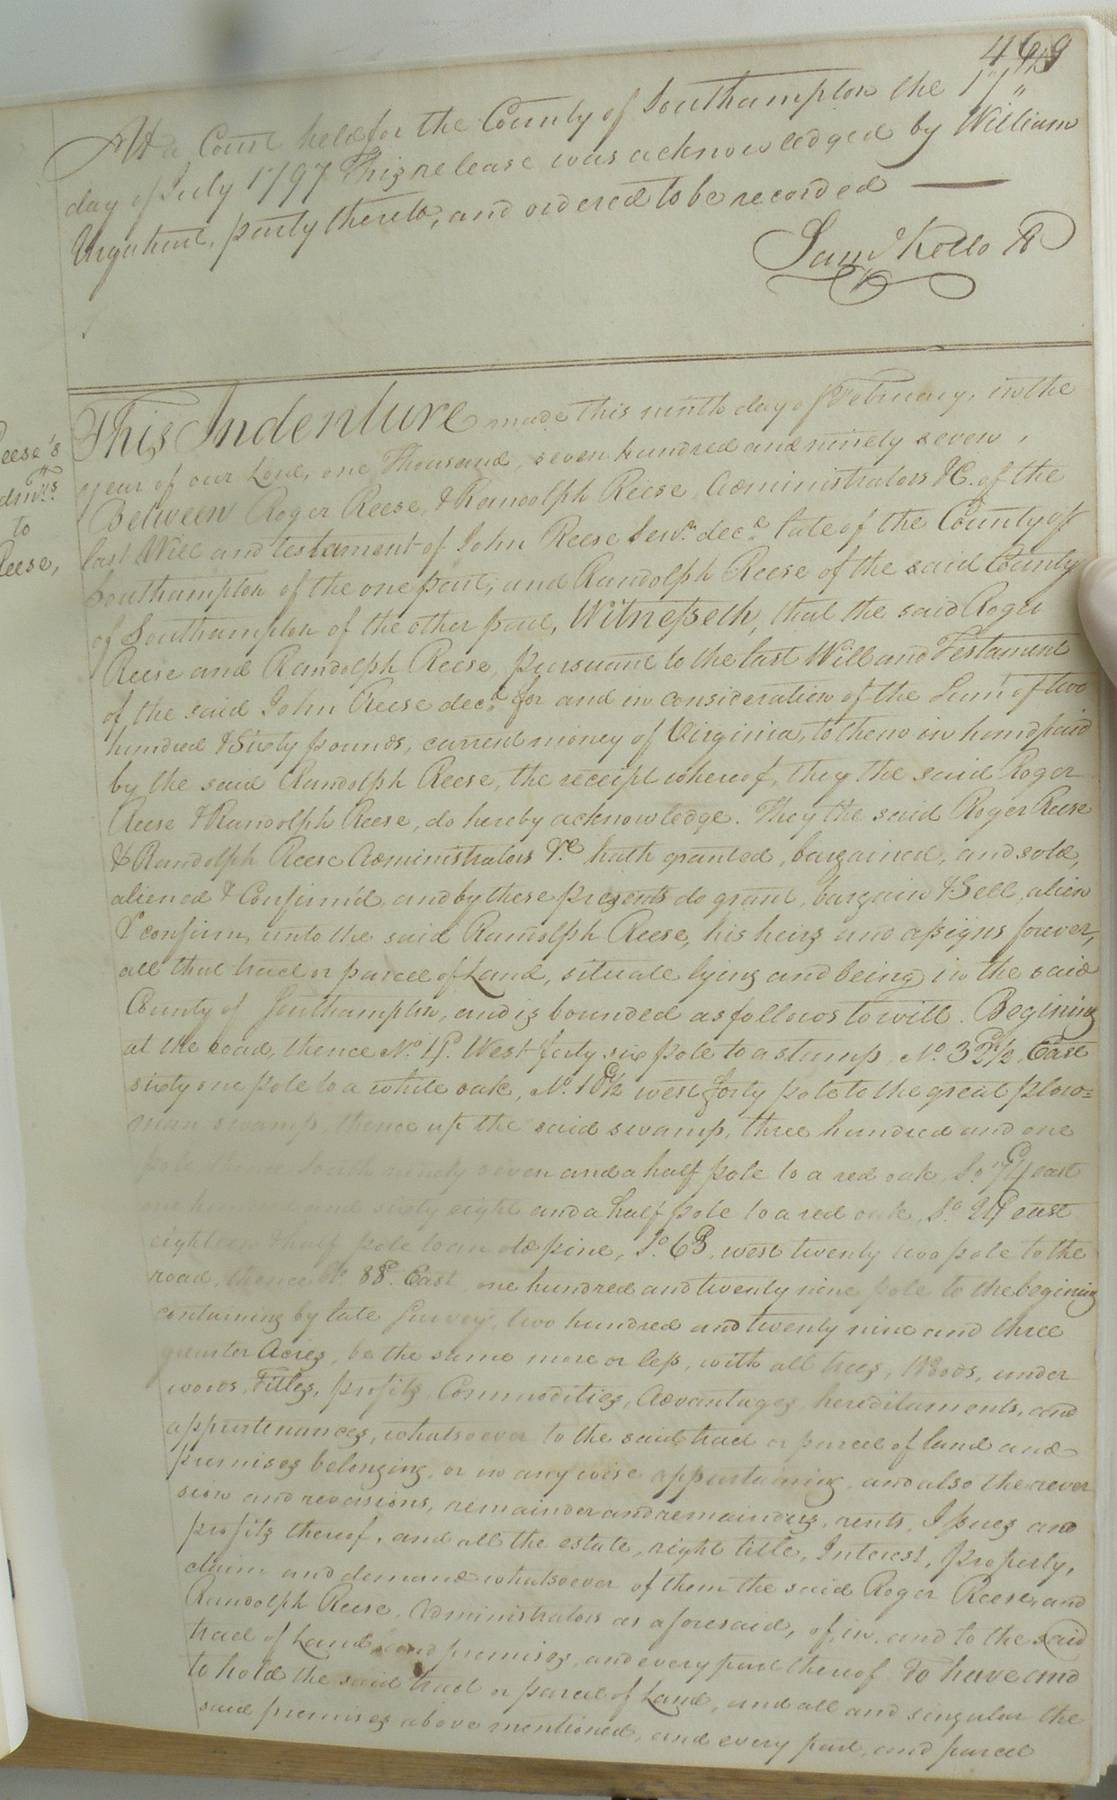 469
At a Court held for the County of Southampton the 17th
day of July 1797 This release was acknowledged by William
Urquhart, party thereto, and ordered to be recorded
Saml Kello
This Indenture made this ninth day of February, in the
year of our Lord, one Thousand, seven hundred and ninety seven,
Between Roger Reese, & Randolph Reese Administrators &C. of the
last Will and testament of John Reese Senr. decd. late of the County of
Southampton of the one part, and Randolph Reese of the said County
of Southampton of the other part, Witnesseth, that the said Roger
Reese and Randolph Reese, pursuant to the last Will and Testament
of the said John Reese decd. for and in consideration of the Sum of two
hundred & Sixty pounds, current money of Virginia, to them in hand paid
by the said Randolph Reese, the receipt whereof, they the said Roger
Reese & Randolph Reese, do hereby acknowledge. They the said Roger Reese
& Randolph Reese Administrators &c. hath granted, bargained, and sold,
aliened & Confirm'd, and by these presents do grant, bargain & Sell, alien
& confirm, unto the said Randolph Reese, his heirs and assigns forever,
all that tract or parcel of Land, situate lying and being in the said
County of Southampton, and is bounded as follows to will. Begining
at the road, thence No. West forty six pole to a stump, No. East
sixty one pole to a white oak, No. west forty pole to the great plow=
man swamp, thence up the said swamp, three hundred and one
pole, thence South ninety seven and a half pole to a red oak, So. east
one hundred and sixty eight and a half pole to a red oak, So. east
eighteen & half pole to an old pine, So. west twenty two pole to the
road, thence No. East one hundred and twenty nine pole to the begining
containing by late Survey, two hundred and twenty nine and three
quarter Acres, be the same more or less, with all trees, Woods, under
woods, Titles, profits, Commodities, Advantages, hereditaments, and
appurtenances, whatsoever to the said tract or parcel of land and
premises belonging, or in any wise appurtaining, and also the rever
sion and reversions, remainder and remainders, rents, Issues and
profits thereof, and all the estate, right title, Interest, property,
claim and demand whatsoever of them the said Roger Reese, and
Randolph Reese, Administrators as aforesaid, of, in, and to the said
tract of Land and premises, and every part thereof To have and
to hold the said tract or parcel of Land, and all and singular the
said premises above mentioned, and every part, and parcel
Reese's
to
Reese,